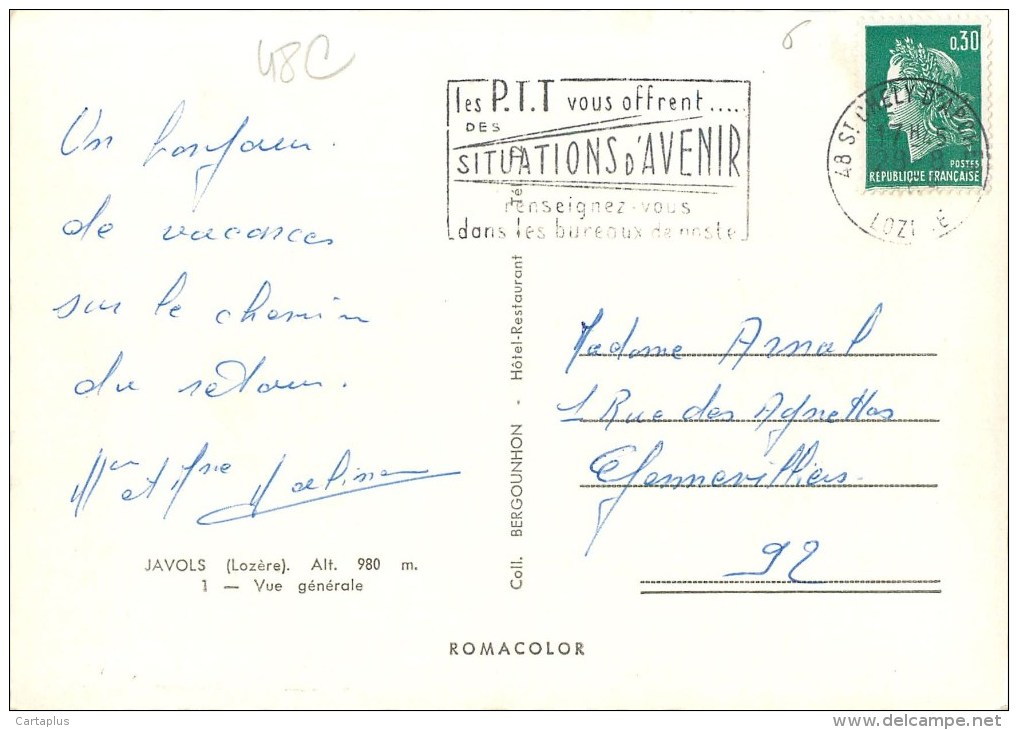 48C
6
les P.T.T vous offrent.....
DES
SITUATIONS D'AVENIR
renseignez-vous
dans les bureaux de poste
0,30
POSTES
REPUBLIQUE FRANÇAISE
48 ST CHELY D'APCHER
17 H
LOZÈRE
Un bonjour.
de vacances
sur le chemin
du retour.
Mr et Mme
Madame Arnal
1 Rue des Agnettes
Gennevilliers
92
JAVOLS (Lozère). Alt. 980 m.
1 — Vue générale
Coll. BERGOUNHON - Hôtel-Restaurant
ROMACOLOR
Cartaplus
www.delcampe.net